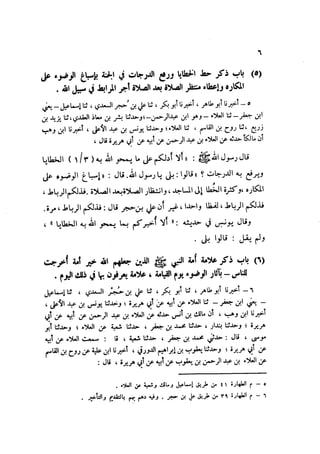 ٦
(٥) باب ذكر حط الخطايا ورفع الدرجات في الجنة بإسباغ الوضوء على
المكاره وإعطاء منتظر الصلاة بعد الصلاة أجر المرابط في سبيل الله .
٥ – أخبرنا أبو طاهر ، أخبرنا أبو بكر ، ثنا علي بن حُجر السعدي ، ثنا إسماعيل – يعني
ابن جعفر – ثنا العلاء – وهو ابن عبد الرحمن – ؛ وحدثنا بشر بن معاذ العقدي ، ثنا يزيد بن
زريع ، ثنا روح بن القاسم ، ثنا العلاء ؛ وحدثنا يونس بن عبد الأعلى ، أخبرنا ابن وهب
أن مالكاً حدثه عن العلاء بن عبد الرحمن عن أبيه عن أبي هريرة قال ،
قال رسول الله ﷺ : « ألا أدلكم على ما يمحو الله به (٣ / ١) الخطايا
ويرفع به الدرجات ؟ » قالوا : بلى يا رسول الله . قال : « إسباغ الوضوء على
المكاره وكثرة الخُطا إلى المساجد ، وانتظار الصلاة بعد الصلاة . فذلكم الرباط ،
فذلكم الرباط ، لفظا واحدا ، غير أن علي بن حجر قال : فذلكم الرباط ، مرة .
وقال يونس في حديثه : « ألا أخبركم بما يمحو الله به الخطايا » ،
ولم يقل : قالوا بلى .
(٦) باب ذكر علامة أمة النبي ﷺ الذين جعلهم الله خير أمة أخرجت
للناس – بآثار الوضوء يوم القيامة ، علامة يعرفون بها في ذلك اليوم .
٦ – أخبرنا أبو طاهر ، ثنا أبو بكر ، ثنا علي بن حُجْر السعدي ، ثنا إسماعيل
– يعني ابن جعفر – ثنا العلاء عن أبيه عن أبي هريرة ؛ وحدثنا يونس بن عبد الأعلى ،
أخبرنا ابن وهب ، أن مالك بن أنس حدثه عن العلاء بن عبد الرحمن عن أبيه عن أبي
هريرة ؛ وحدثنا بندار ، ثنا محمد بن جعفر ، حدثنا شعبة عن العلاء ؛ وحدثنا أبو
موسى ، قال : حدثني محمد بن جعفر ، حدثنا شعبة ، قا : سمعت العلاء عن أبيه
عن أبي هريرة ؛ وحدثنا يعقوب بن إبراهيم الدورقي ، أخبرنا ابن علية عن روح بن القاسم
عن العلاء بن عبد الرحمن بن يعقوب عن أبيه عن أبي هريرة ، قال :
٥ – م الطهارة ٤١ من طريق إسماعيل ومالك وشعبة عن العلاء .
٦ – م الطهارة ٣٩ من طريق علي بن حجر . وفيه دهم بهم بالتقديم والتأخير .